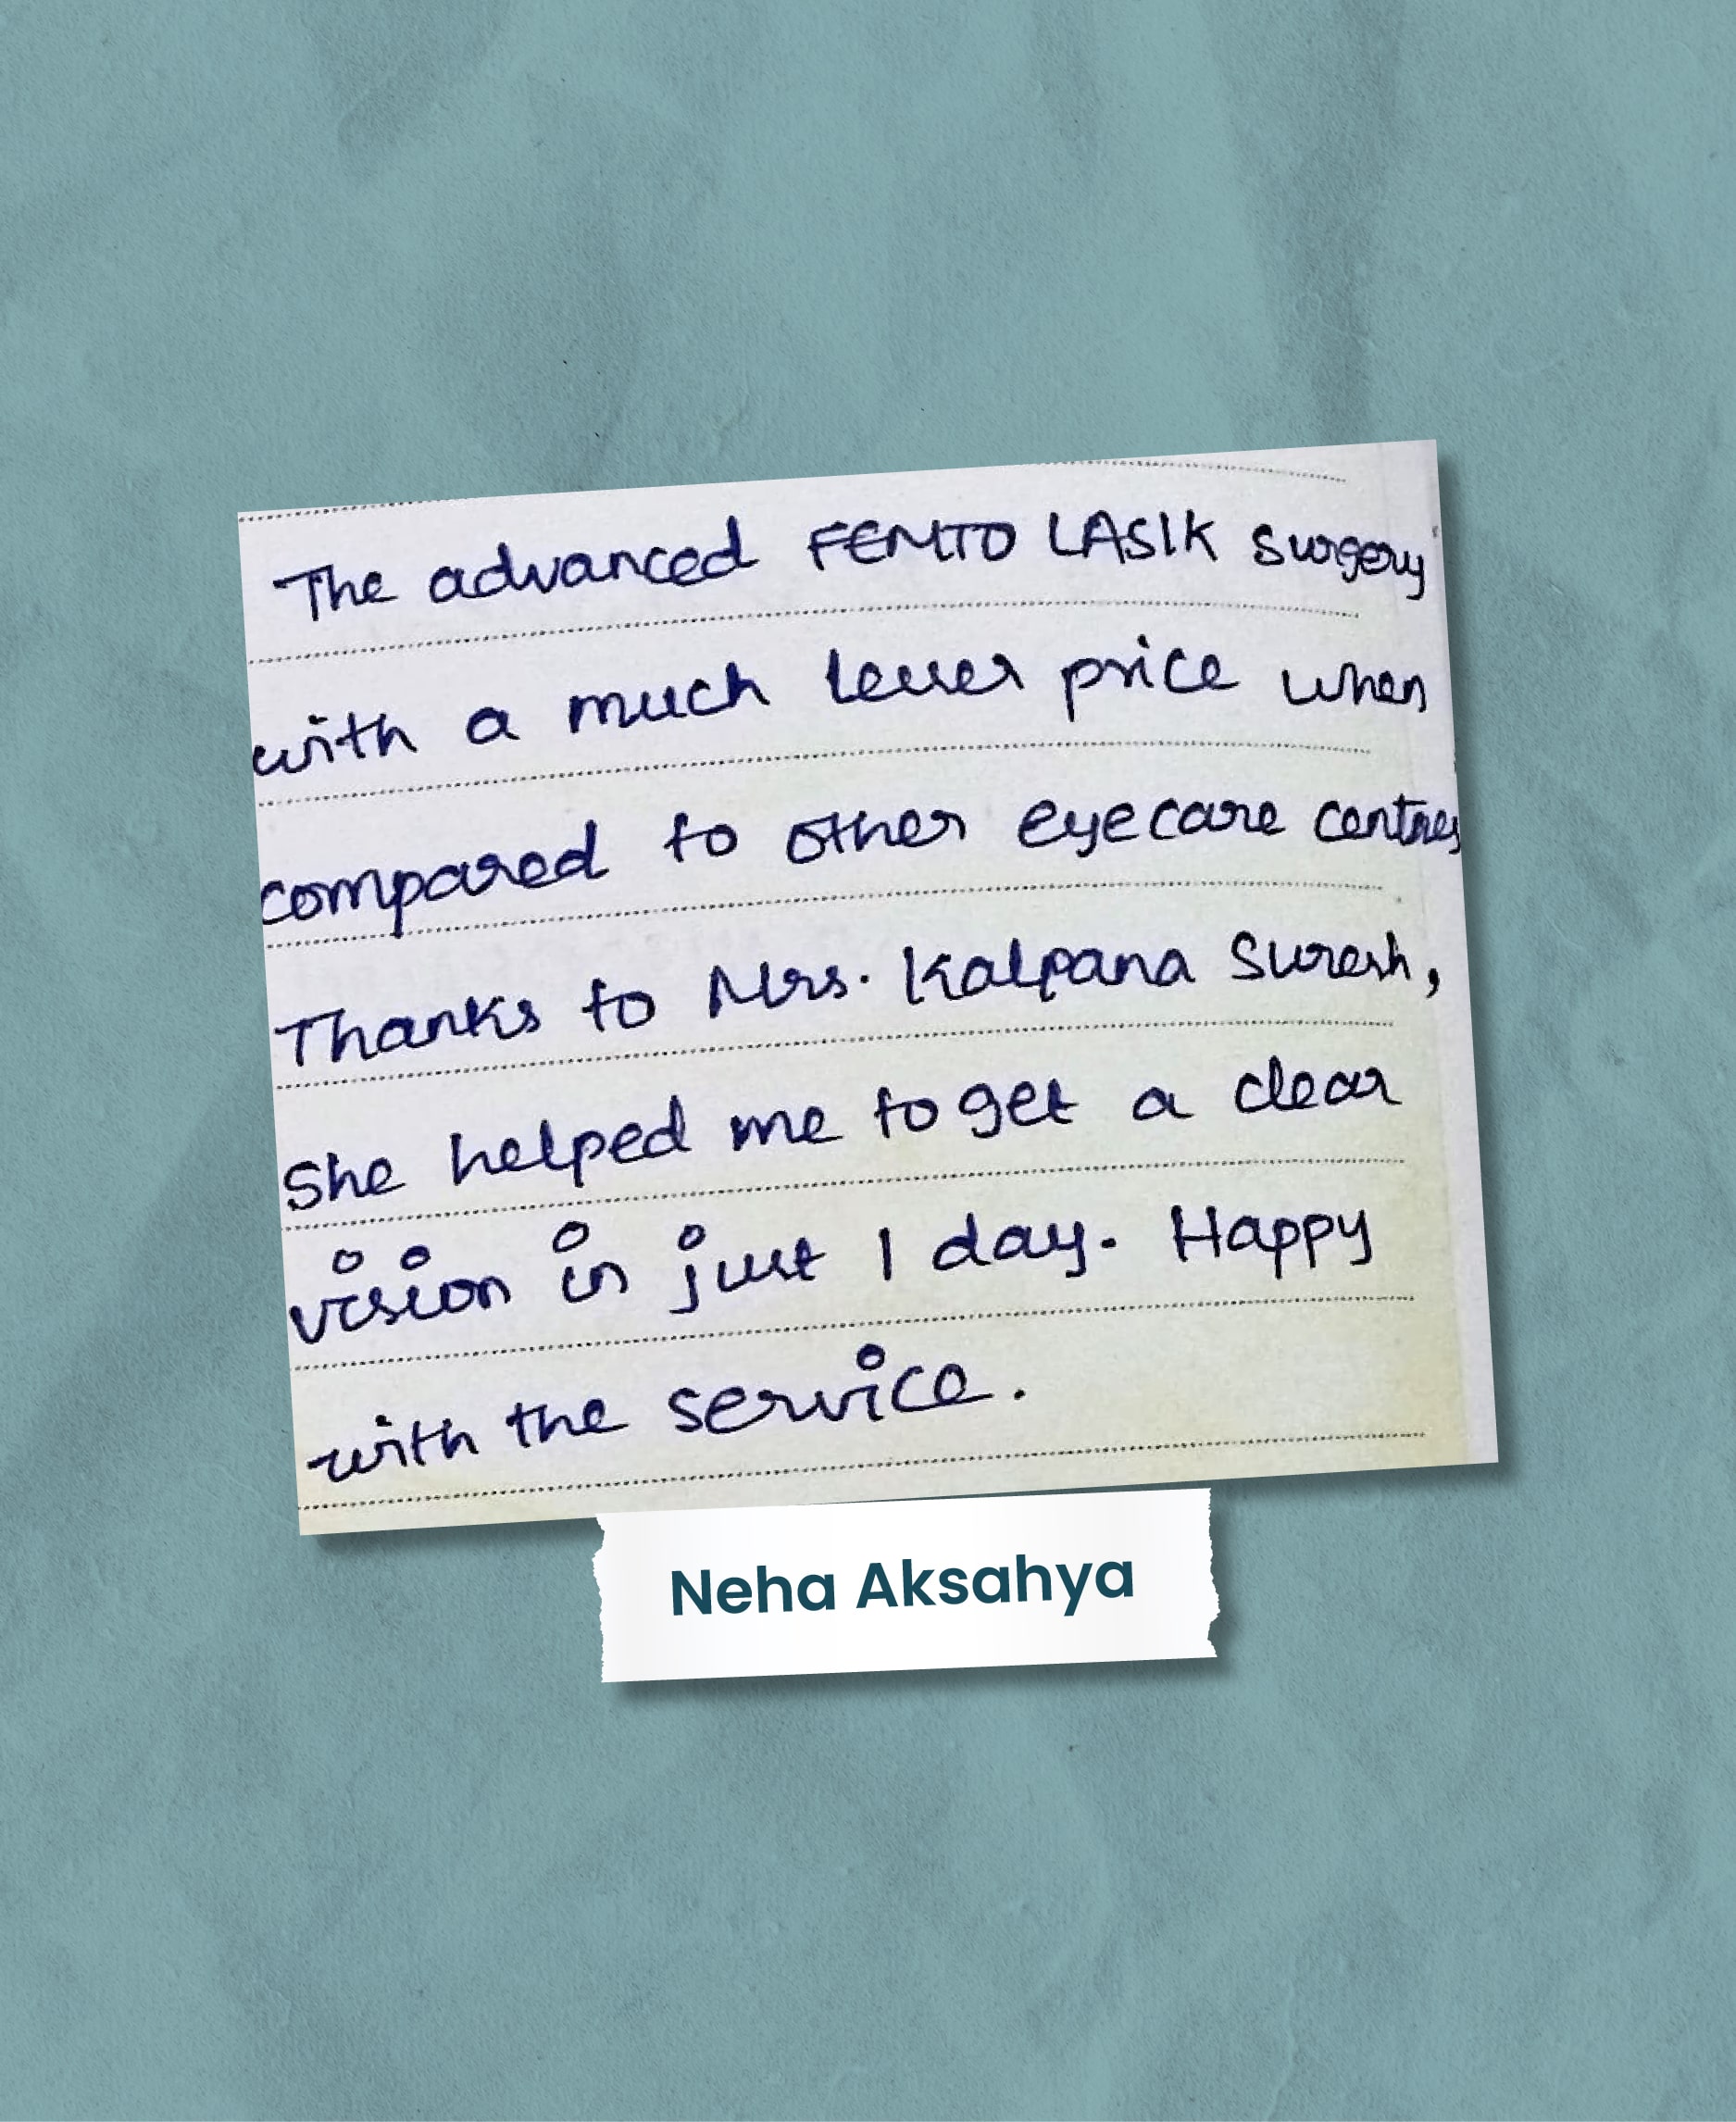 The advanced FEMTO LASIK Surgery
with a much lesser price when
compared to other eyecare centres
Thanks to Mrs. Kalpana Suresh,
She helped me to get a clear
vision in just 1 day. Happy
with the service.
Neha Aksahya